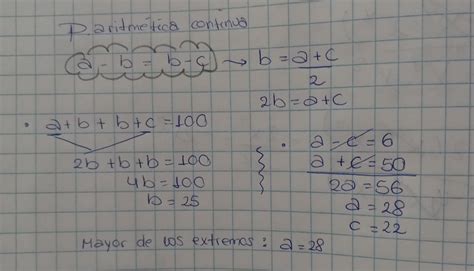 P. aritmética continua
(a - b = b - c) → b = a + c / 2
2b = a + c
• a + b + b + c = 100
2b + b + b = 100
4b = 100
b = 25
• a - c = 6
a + c = 50
2a = 56
a = 28
c = 22
Mayor de los extremos: a = 28